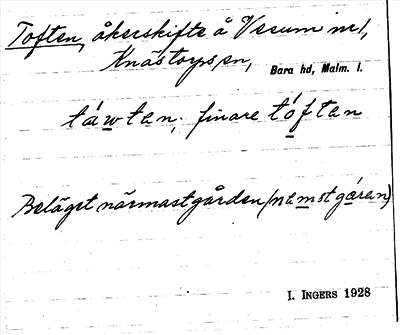 Toften, åkerskifte å Vesum m 1,
Knästorps sn, Bara hd, Malm. l.
táwten; finare tóften
Beläget närmast gården (namst gáran)
I. INGERS 1928